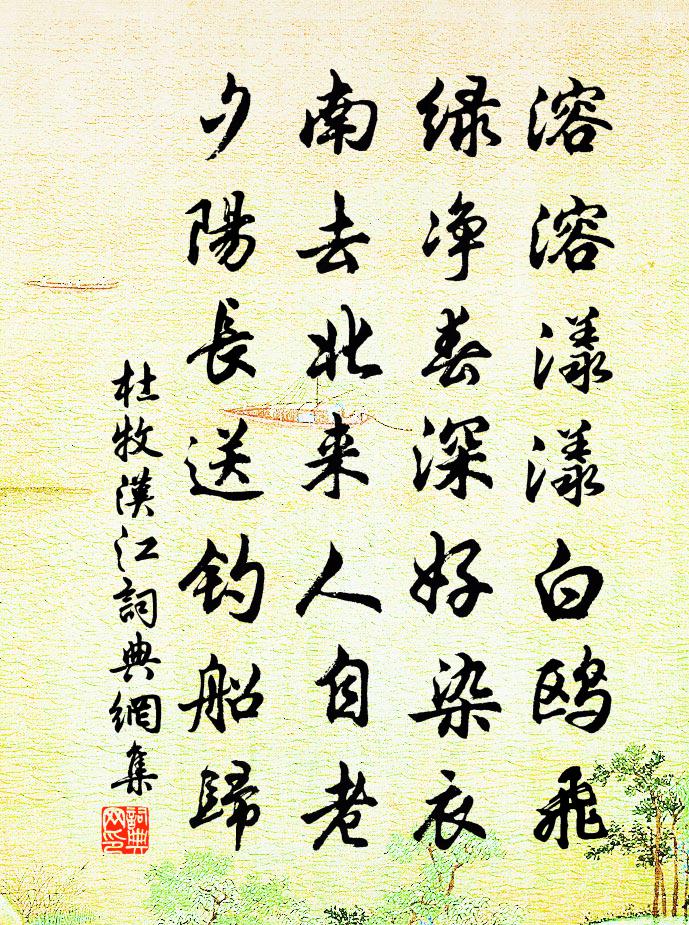 溶溶漾漾白鸥飛
緑净春深好染衣
南去北来人自老
夕陽長送钓船歸
杜牧漢江詞典網集
詞典网印